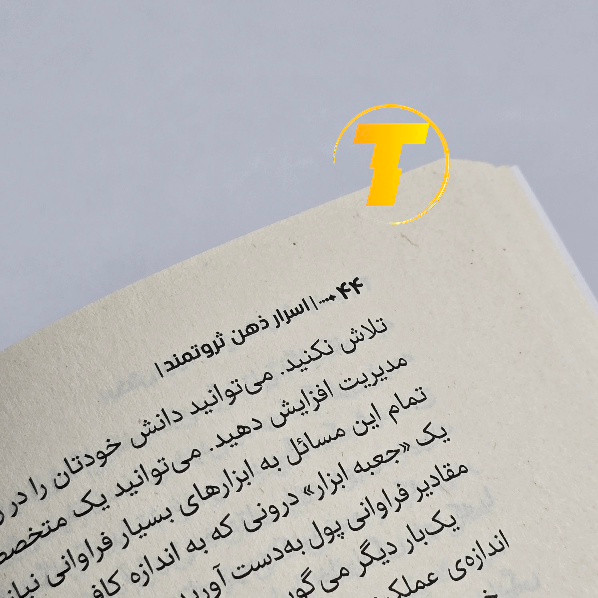 T
۴۴ ⟶ | اسرار ذهن ثروتمند |
تلاش نکنید. می‌توانید دانش خودتان را در
مدیریت افزایش دهید. می‌توانید یک متخصص
تمام این مسائل به ابزارهای بسیار فراوانی نیاز
یک «جعبه ابزار» درونی که به اندازه
مقادیر فراوانی پول به‌دست
یک‌بار دیگر می‌گو
اندازه‌ی